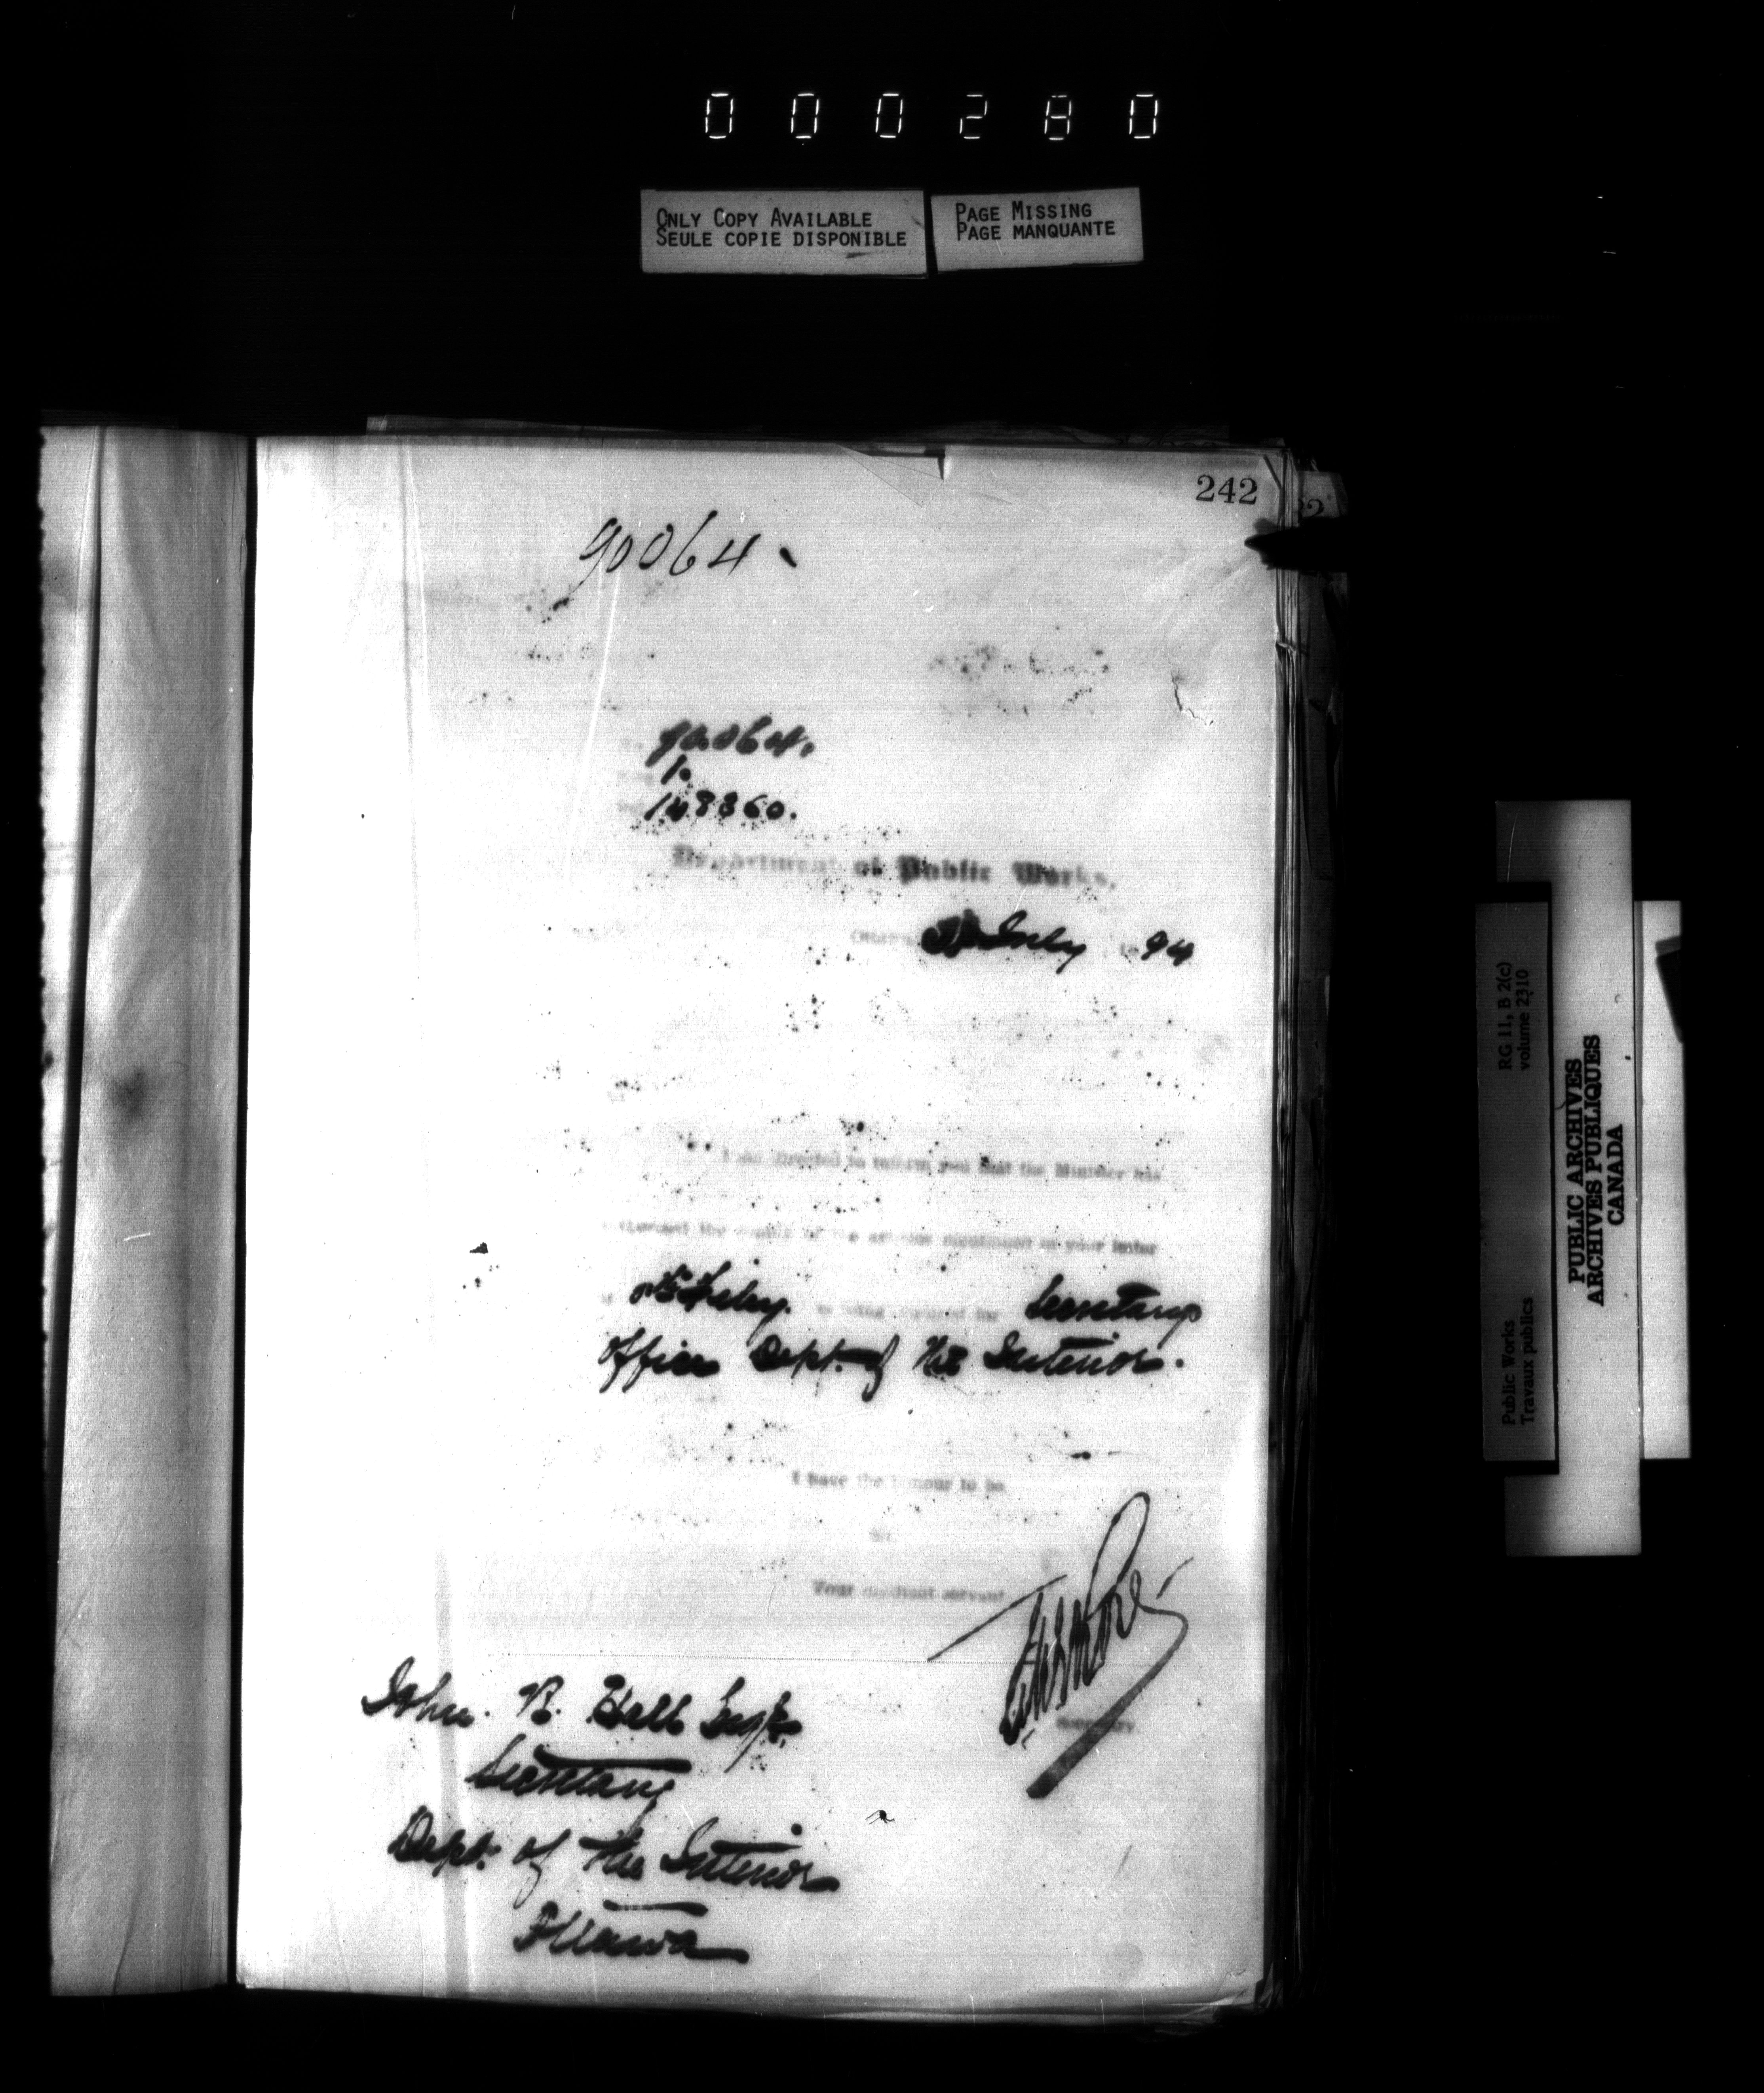 000280
ONLY COPY AVAILABLE
SEULE COPIE DISPONIBLE
PAGE MISSING
PAGE MANQUANTE
242
90064
90064.
1.
148360.
Department of Public Works.
July 1894
I am directed to inform you that the Minister has
the supply of the articles mentioned in your letter
of July. as being required for Secretarys
Office Dept. of the Interior.
I have the honour to be
Sir,
Your obedient servant
Secretary.
John. R. Hall Esqr.
Secretary
Dept. of the Interior
Ottawa
RG 11, B 2(c)
volume 2310
Public Works
Travaux publics
PUBLIC ARCHIVES
ARCHIVES PUBLIQUES
CANADA